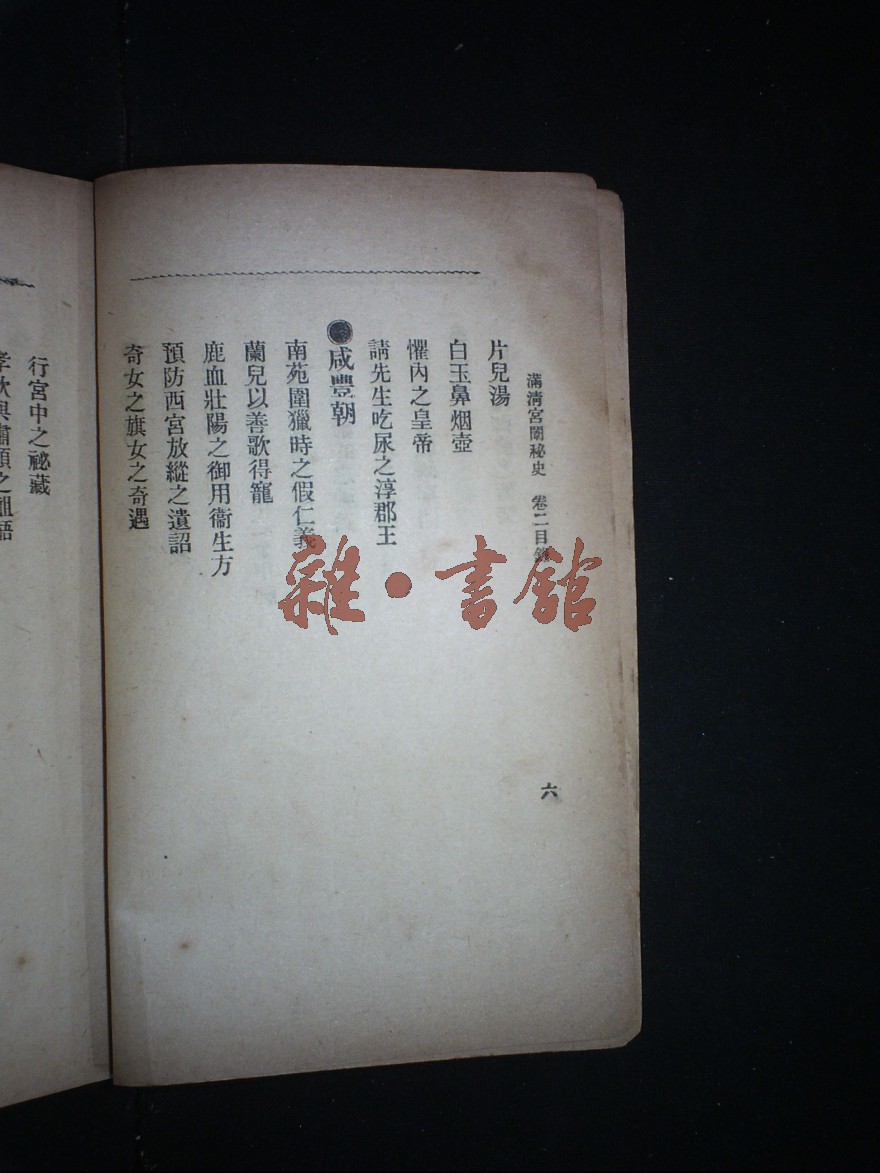 滿清宮闈祕史 卷二目錄
六
片兒湯
白玉鼻烟壺
懼內之皇帝
請先生吃尿之淳郡王
咸豐朝
南苑圍獵時之假仁義
蘭兒以善歌得寵
鹿血壯陽之御用衞生方
預防西宮放縱之遺詔
奇女之旗女之奇遇
行宮中之祕藏
雜·書館